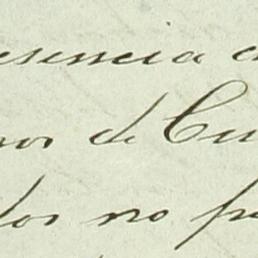 esencia
de Cu
dos no p